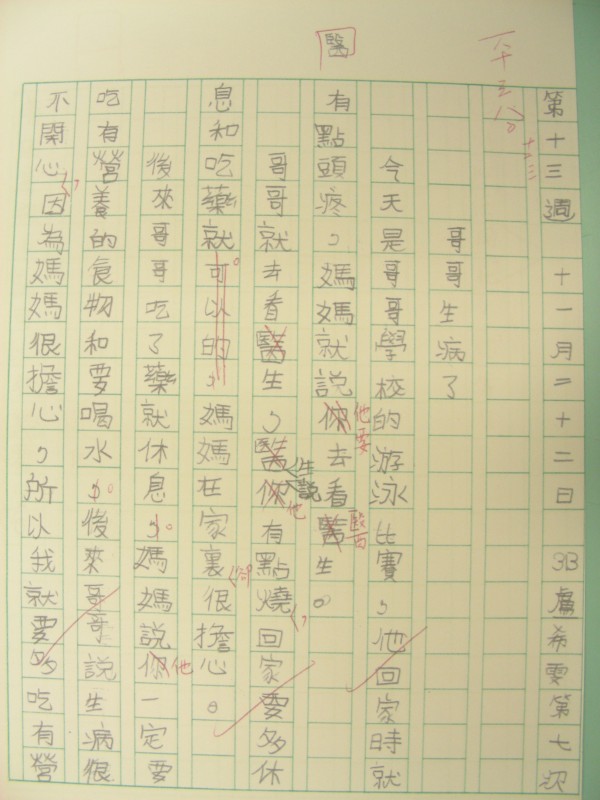 八十三分
第十三週 十一月二十二日 3B 盧希雯 第七次
哥哥生病了
今天是哥哥學校的游泳比賽，他回家時就
有點頭疼，媽媽就說你去看醫生。
他要
醫
醫
哥哥就去看醫生，醫你有點燒回家要多休
生說
他
息和吃藥就可以的，媽媽在家裏很擔心。
卻
後來哥吃了藥就休息，媽媽說你一定要
他
吃有營養的食物和要喝水，後來哥哥說生病很
不開心因為媽媽很擔心，所以我就要多吃有營